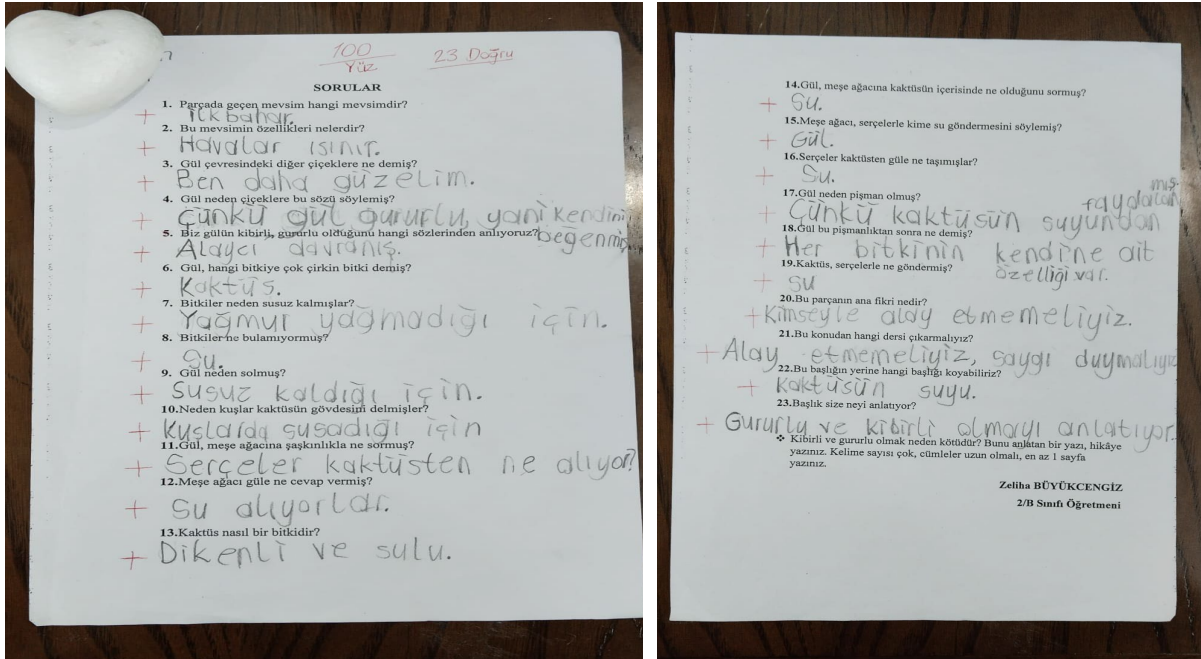 100
Yüz
23 Doğru
SORULAR
1. Parçada geçen mevsim hangi mevsimdir?
+ ilkbahar.
2. Bu mevsimin özellikleri nelerdir?
+ Havalar ısınır.
3. Gül çevresindeki diğer çiçeklere ne demiş?
+ Ben daha güzelim.
4. Gül neden çiçeklere bu sözü söylemiş?
+ Çünkü gül gururlu, yani kendini
beğenmiş
5. Biz gülün kibirli, gururlu olduğunu hangi sözlerinden anlıyoruz?
+ Alaycı davranış.
6. Gül, hangi bitkiye çok çirkin bitki demiş?
+ Kaktüs.
7. Bitkiler neden susuz kalmışlar?
+ Yağmur yağmadığı için.
8. Bitkiler ne bulamıyormuş?
+ Su.
9. Gül neden solmuş?
+ Susuz kaldığı için.
10.Neden kuşlar kaktüsün gövdesini delmişler?
+ Kuşlarda susadığı için
11.Gül, meşe ağacına şaşkınlıkla ne sormuş?
+ Serçeler kaktüsten ne alıyor?
12.Meşe ağacı güle ne cevap vermiş?
+ Su alıyorlar.
13.Kaktüs nasıl bir bitkidir?
+ Dikenli ve sulu.
14.Gül, meşe ağacına kaktüsün içerisinde ne olduğunu sormuş?
+ Su.
15.Meşe ağacı, serçelerle kime su göndermesini söylemiş?
+ Gül.
16.Serçeler kaktüsten güle ne taşımışlar?
+ Su.
17.Gül neden pişman olmuş?
+ Çünkü kaktüsün suyundan
faydalan
mış
18.Gül bu pişmanlıktan sonra ne demiş?
+ Her bitkinin kendine ait
özelliği var.
19.Kaktüs, serçelerle ne göndermiş?
+ su
20.Bu parçanın ana fikri nedir?
+ Kimseyle alay etmemeliyiz.
21.Bu konudan hangi dersi çıkarmalıyız?
+ Alay etmemeliyiz, saygı duymalıyız
22.Bu başlığın yerine hangi başlığı koyabiliriz?
+ Kaktüsün suyu.
23.Başlık size neyi anlatıyor?
+ Gururlu ve kibirli olmayı anlatıyor.
❖ Kibirli ve gururlu olmak neden kötüdür? Bunu anlatan bir yazı, hikâye
yazınız. Kelime sayısı çok, cümleler uzun olmalı, en az 1 sayfa
yazınız.
Zeliha BÜYÜKCENGİZ
2/B Sınıfı Öğretmeni